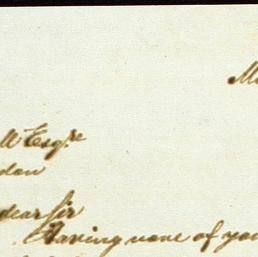 Mo
ll Esqre
don
dear Sir
Having none of you